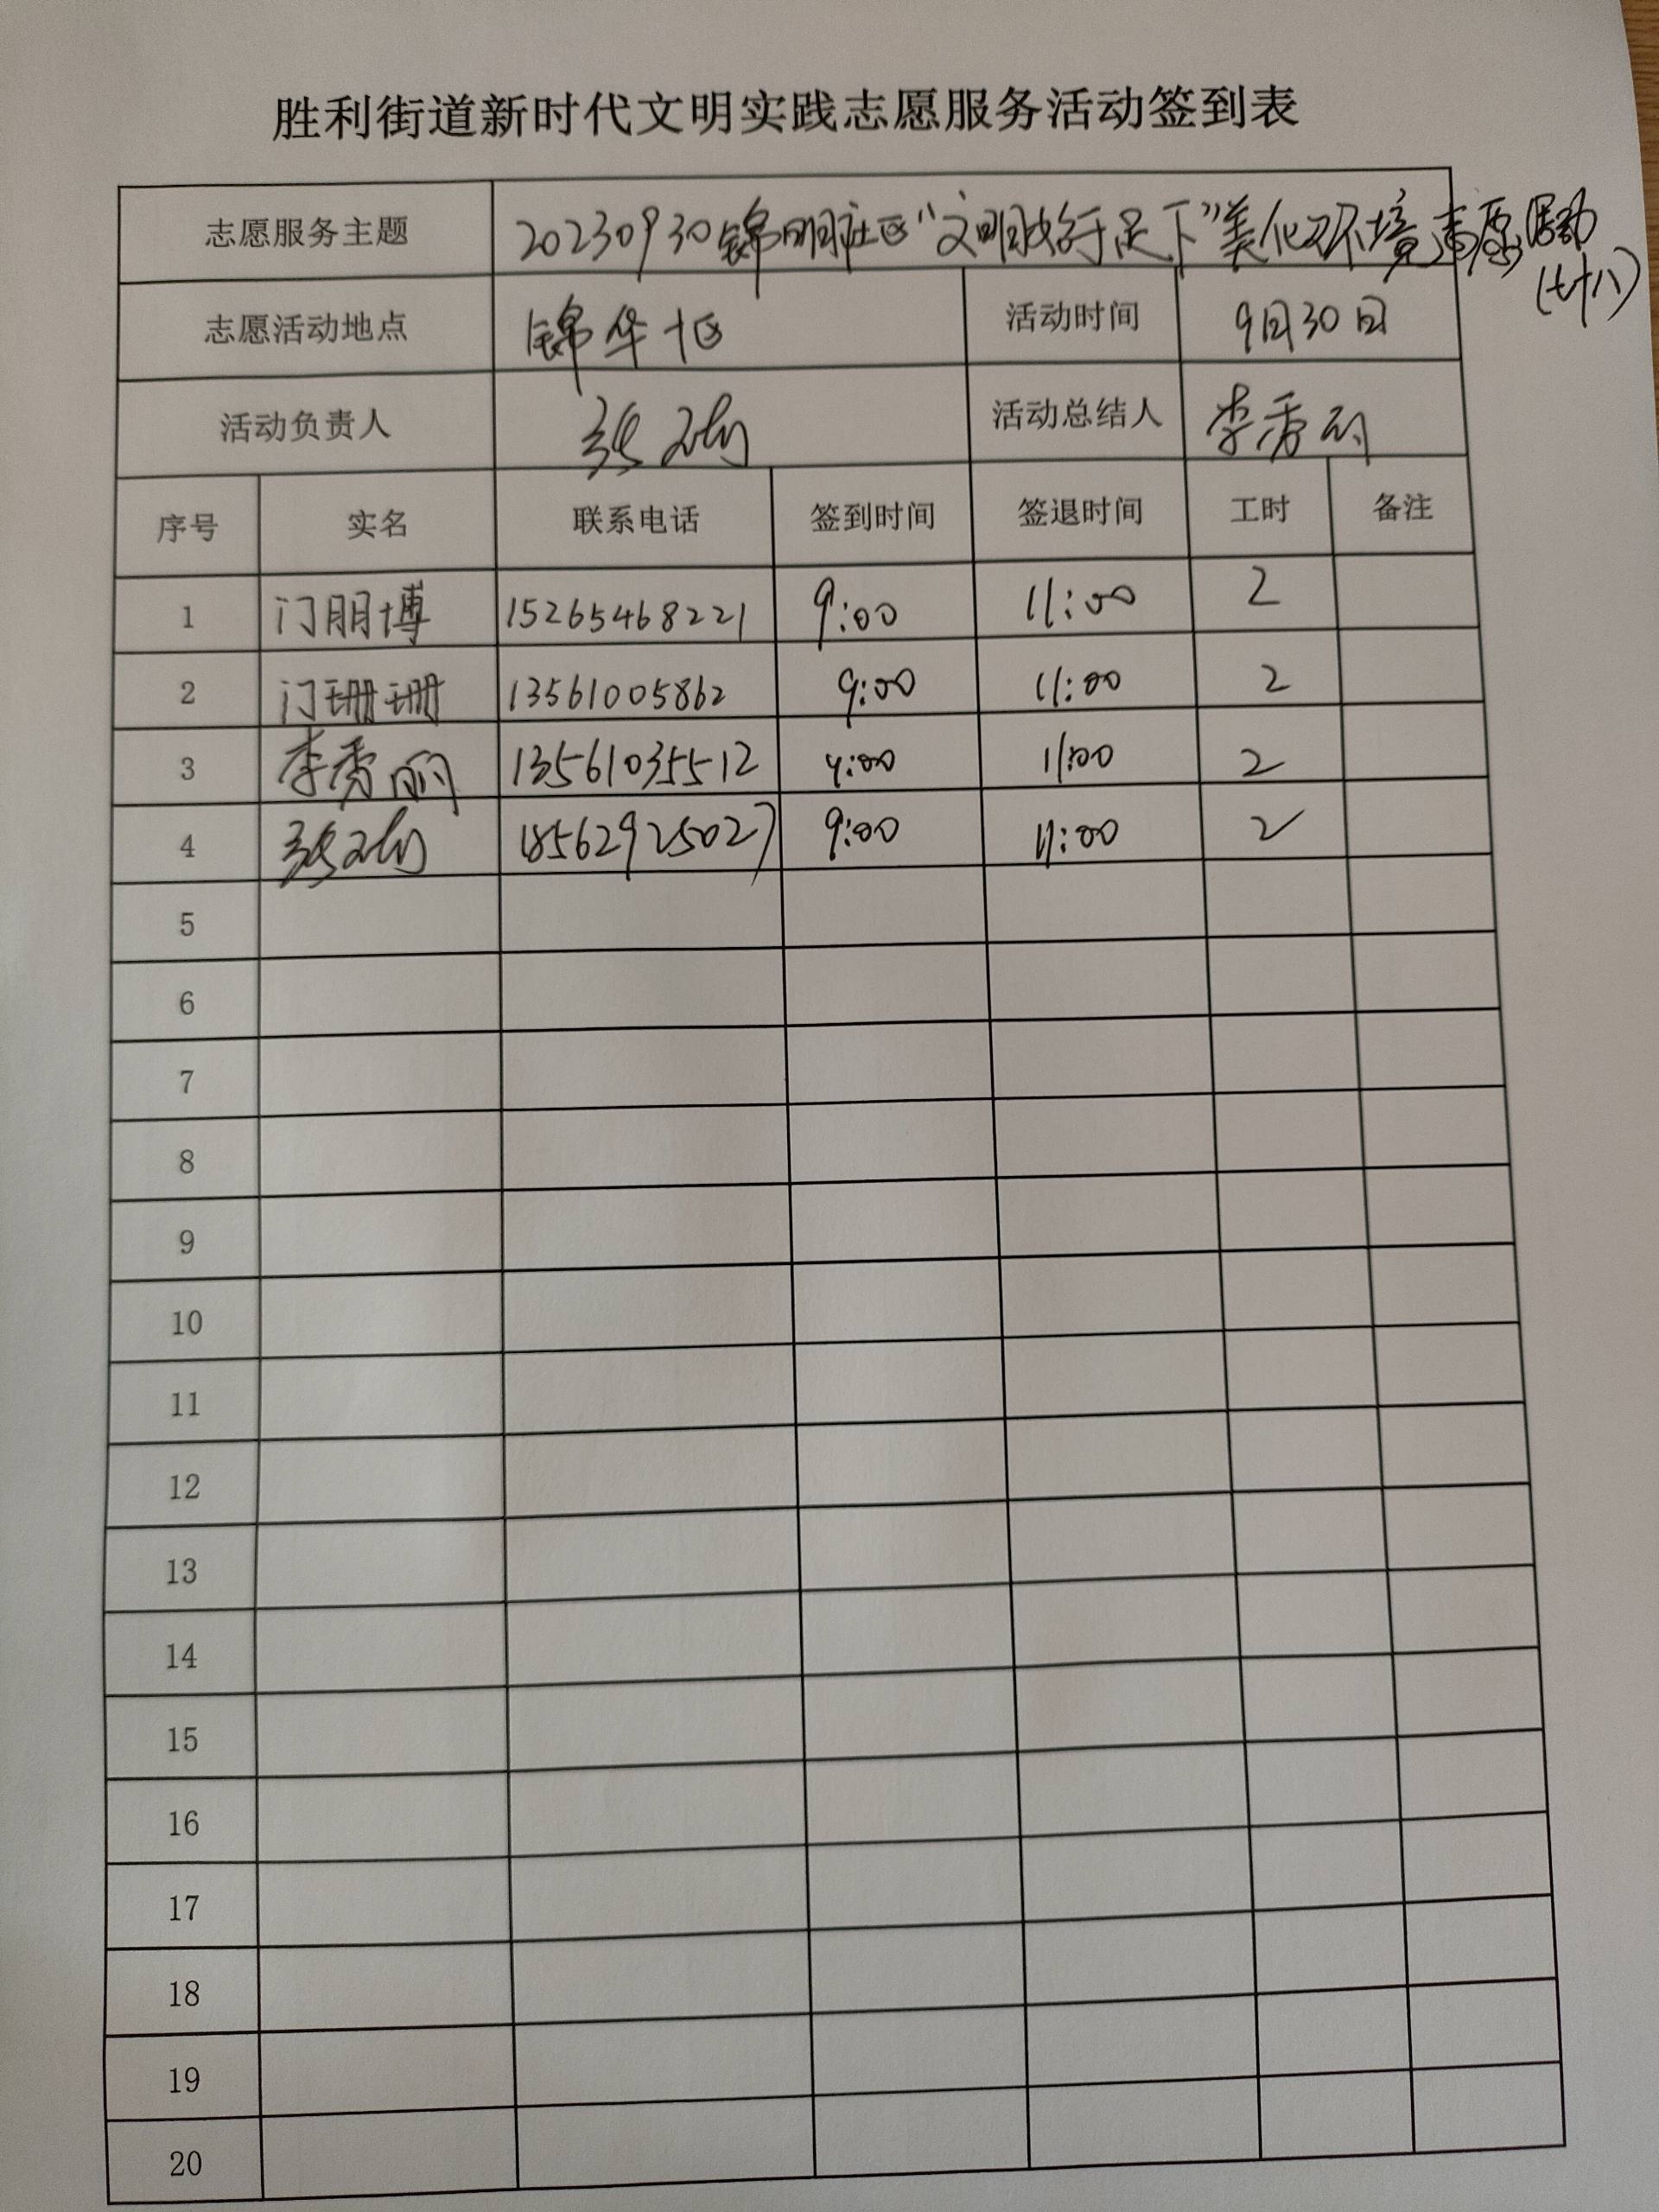 胜利街道新时代文明实践志愿服务活动签到表
志愿服务主题 20230930锦明社区“文明始于足下”美化环境志愿活动
(七十八)
志愿活动地点 锦华十区 活动时间 9月30日
活动负责人 张 活动总结人 李秀丽
序号 实名 联系电话 签到时间 签退时间 工时 备注
1 门朋博 15265468221 9:00 11:00 2
2 门珊珊 13561005862 9:00 11:00 2
3 李秀丽 13561035512 9:00 11:00 2
4 张 18562925027 9:00 11:00 2
5
6
7
8
9
10
11
12
13
14
15
16
17
18
19
20